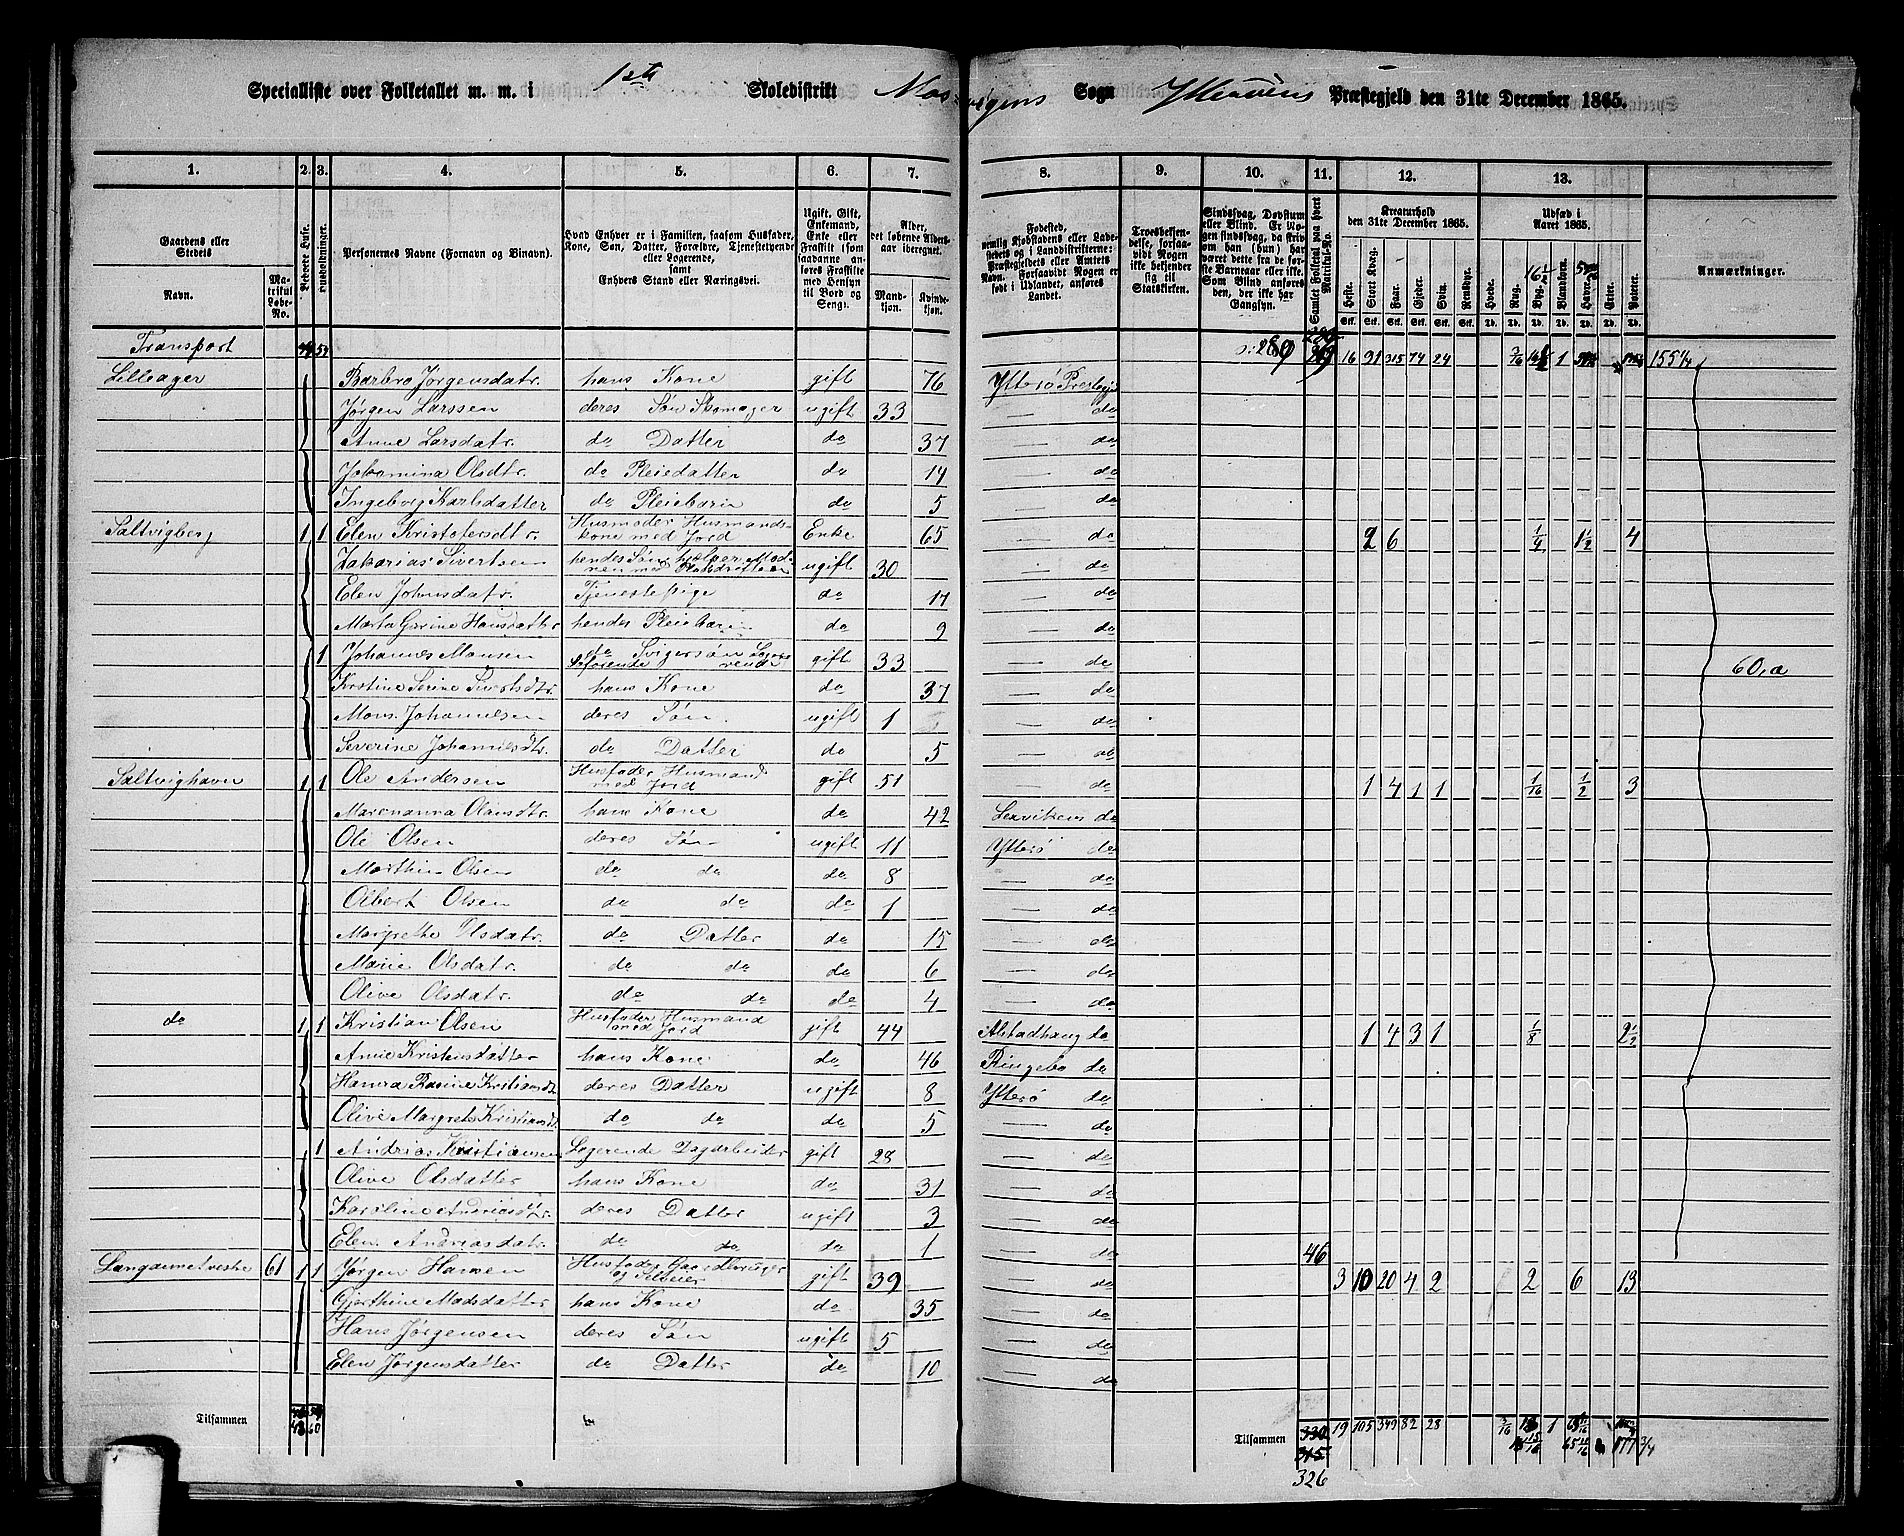 Specialliste over Folketallet m. m. i 1ste Skoledistrikt Mosvigens Sogn Ytterøens Præstegjeld den 31te December 1865.
1. 2. 3. 4. 5. 6. 7. 8. 9. 10. 11. 12. 13.
Gaardens eller Stedets
Navn. Matrikul Løbe-No.
Beboede Huse.
Husholdninger.
Personernes Navne (Fornavn og Binavn).
Hvad Enhver er i Familien, saasom Husfader, Kone, Søn, Datter, Forældre, Tjenestetyende eller Logerende, samt Enhvers Stand eller Næringsvei.
Ugift, Gift, Enkemand, Enke eller Fraskilt
Alder, det løbende Aldersaar iberegnet.
Mandkjøn. Kvindekjøn.
Fødested,
Troesbekjendelse, forsaavidt Nogen ikke bekjender sig til Statskirken.
Sindssvag, Døvstum eller Blind.
Samlet Folketal paa hvert Matrikul-No.
Kreaturhold den 31te December 1865.
Heste. Stort Kvæg. Faar. Gjeder. Svin. Rensdyr.
Udsæd i Aaret 1865.
Hvede. Rug. Byg. Blandkorn. Havre. Erter. Poteter.
Anmærkninger.
Transport 16 91 315 74 24 3/16 1
Lilleager Barbro Jørgensdatr. hans Kone gift 76 Ytterø Prestegj
Jørgen Larssen deres Søn Skomager ugift 33 do
Anne Larsdatr. do Datter do 37 do
Johamina Olsdtr. do Pleiedatter do 14 do
Ingeborg Karlsdatter do Pleiebarn do 5 do
Saltvigberg 1 1 Elen Kristofersdtr. Husmoder Husmandskone med Jord Enke 65 do 2 6 1/4 1 1/2 4
Zakarias Sivertsen hendes Søn hjelper Moderen med ugift 30 do
Elen Johnsdatr. Tjenestepige do 17 do
Marta Gurine Hansdatter hendes Pleiebarn do 9 do
1 Johannes Monsen do Svigersøn Logerende gift 33 do 60,a
Kristine Serine Sivertsdtr. hans Kone do 37 do
Mons Johannesen deres Søn ugift 1 do
Severine Johannesdtr. do Datter do 5 do
Saltvighavn 1 1 Ole Andersen Husfader Husmand med Jord gift 51 do 1 4 1 1 1/16 1/2 3
Marenanna Olausdtr. hans Kone do 42 Lexviken do
Ole Olsen deres Søn ugift 11 Ytterø do
Marthin Olsen do do do 8 do
Olbert Olsen do do do 1 do
Margrethe Olsdatr. do Datter do 15 do
Marie Olsdatr. do do do 6 do
Olive Olsdatr. do do do 4 do
do 1 1 Kristian Olsen Husfader Husmand med Jord gift 44 Alstadhaug do 1 4 3 1 1/8 2 1/2
Anne Kristensdatter hans Kone do 46 Ringebo do
Hanna Rasine Kristiansdt deres Datter ugift 8 Ytterø do
Olive Margrete Kristiansdt do do do 5 do
1 Andrias Kristiansen Logerende Dagarbeider gift 28 do
Olive Olsdatter hans Kone do 31 do
Karoline Andriasdtr. deres Datter ugift 3 do
Elen Andriasdatr. do do do 1 do 46
Langaunet vestre 61 1 1 Jørgen Hansen Husfader Gaardbruger og Selveier gift 39 do 3 10 20 4 2 2 6 13
Gjerthine Madsdatter hans Kone do 35 do
Hans Jørgensen deres Søn ugift 5 do
Elen Jørgensdatter do Datter do 10 do
Tilsammen 48 60 Tilsammen 330 19 105 349 82 28 3/16 1
315
326